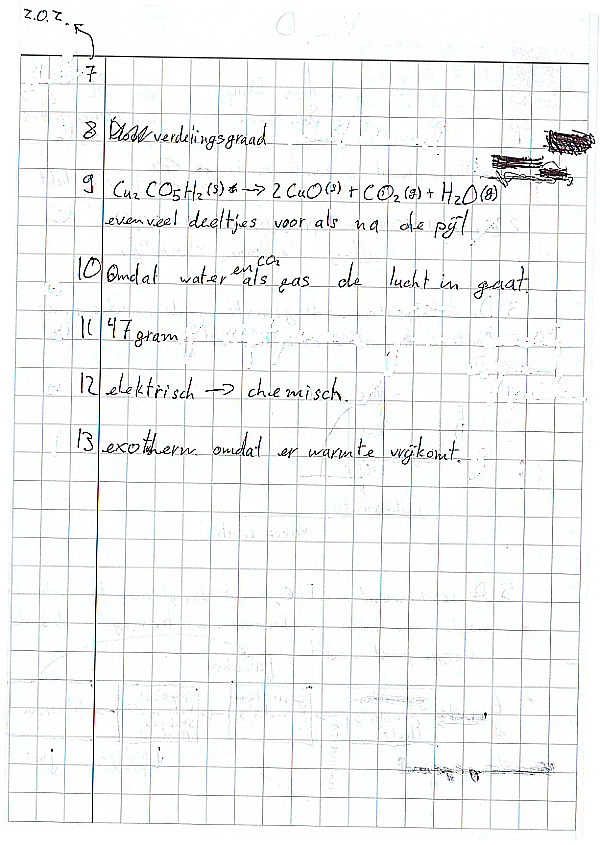 z.o.z.
7
8 verdelingsgraad
9 Cu₂CO₅H₂(s) → 2 CuO(s) + CO₂(g) + H₂O(g)
evenveel deeltjes voor als na de pijl
10 Omdat water en CO₂ als gas de lucht in gaat.
11 47 gram
12 elektrisch → chemisch.
13 exotherm omdat er warmte vrijkomt.